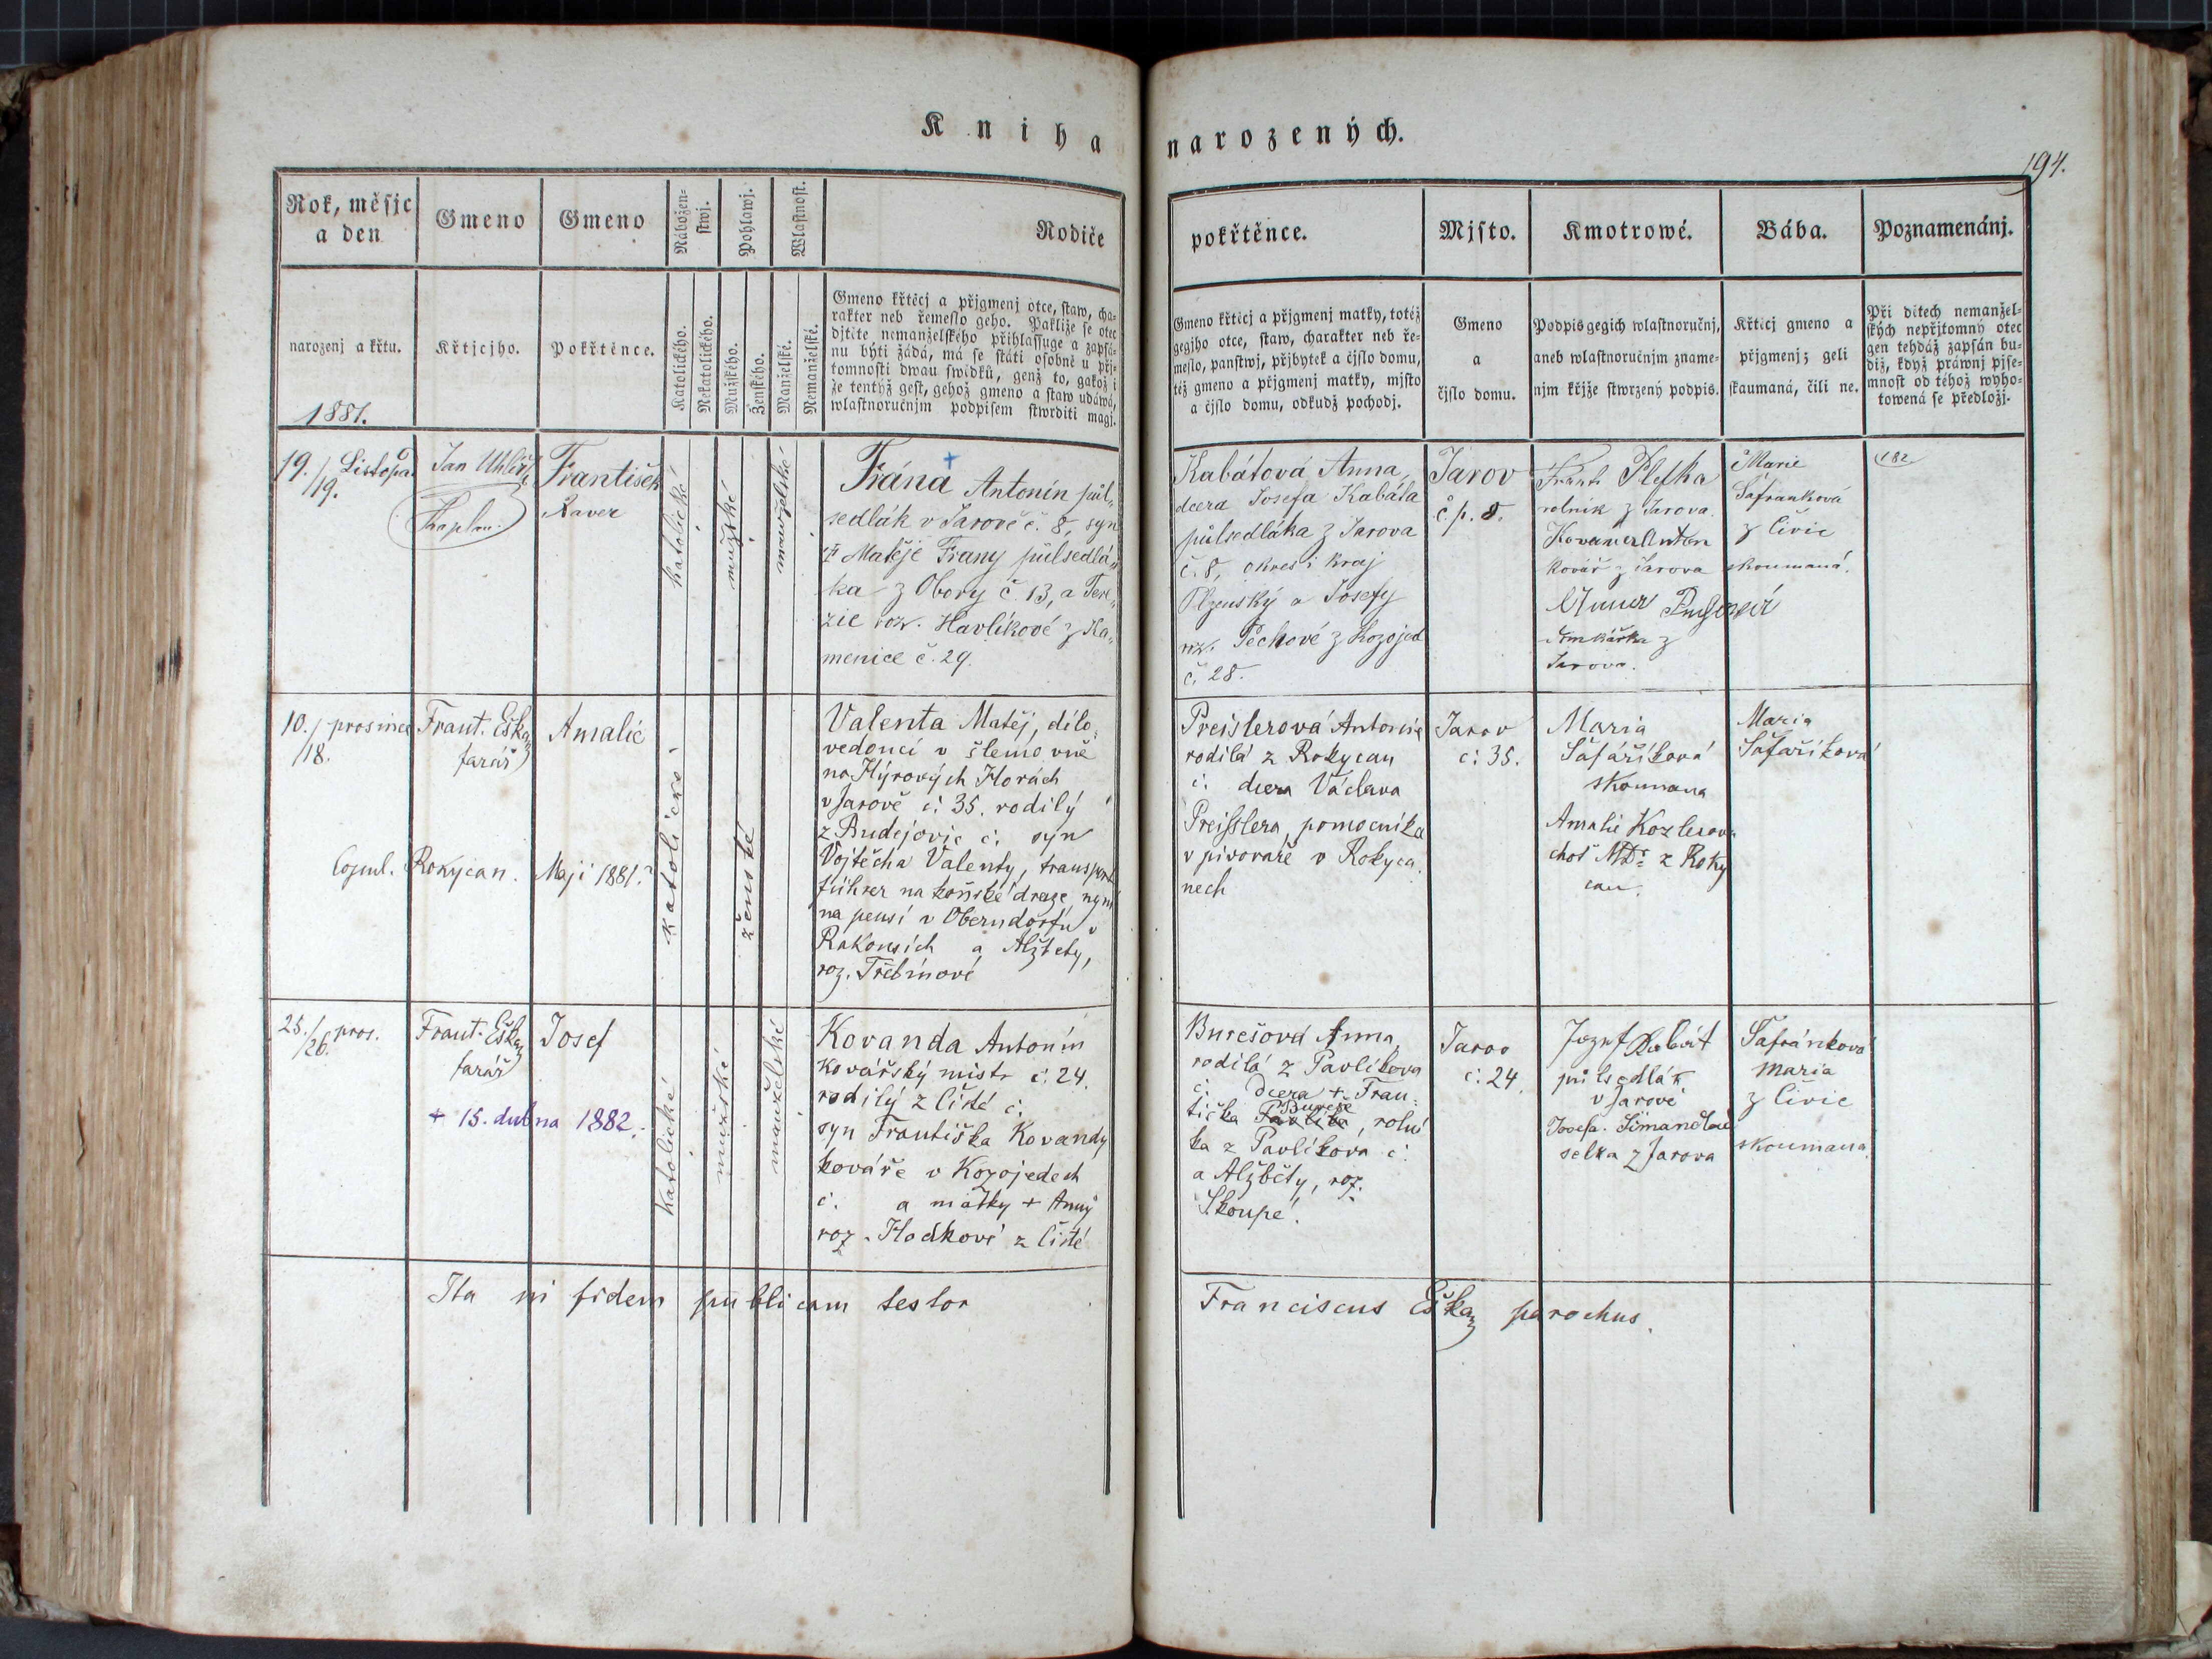 Kniha narozených.
194.
Rok, měsjc a den
Gmeno
Gmeno
Nábožen-
stwj.
Pohlawj.
Wlastnost.
Rodiče
pokřtěnce.
Mjsto.
Kmotrowé.
Bába.
Poznamenánj.
narozenj a křtu.
1881.
Křtjcjho.
Pokřtěnce.
Katolického.
Nekatolického.
Mužského.
Ženského.
Manželské.
Nemanželské.
Gmeno křtěcj a přjgmenj otce, staw, cha-
rakter neb řemeslo geho. Pakliže se otec
djtěte nemanželského přihlassuge a zapsá-
nu býti žádá, má se státi osobně u přj-
tomnosti dwau swědků, genž to, gakož i
že tentýž gest, gehož gmeno a staw udáwá,
wlastnoručnjm podpisem stwrditi magj.
Gmeno křticj a přjgmenj matky, totéž
gegjho otce, staw, charakter neb ře-
meslo, panstwj, přjbytek a čjslo domu,
též gmeno a přjgmenj matky, mjsto
a čjslo domu, odkudž pochodj.
Gmeno
a
čjslo domu.
Podpis gegich wlastnoručnj,
aneb wlastnoručnjm zname-
njm křjže stwrzený podpis.
Křticj gmeno a
přjgmenj; geli
skaumaná, čili ne.
Při dětech nemanžel-
ských nepřjtomný otec
gen tehdáž zapsán bu-
diž, když práwnj pjse-
mnost od téhož wyho-
towená se předložj.
19./19. Listopa.
Jan Uhlíř
Kaplan
František
Xaver
katolické
mužské
manželské
Frána Antonín půl-
sedlák v Jarově č. 8, syn
+ Matěje Frany půlsedlá-
ka z Obory č. 13, a Tere-
zie roz. Havlíkové z Ka-
menice č. 29.
Kabátová Anna,
dcera Josefa Kabáta
půlsedláka z Jarova
č. 8, okres i kraj
Plzenský a Josefy
roz. Pechové z Kozojed
č. 28.
Jarov
č. p. 8.
Frant Pletka
rolník z Jarova.
Kovanda Anton
kovář z Jarova
domkářka z
Jarova.
Marie
Šafranková
z Čivic
skoumaná.
182
10./18. prosince
Frant. Eška
farář
Amalie
katolické
ženské
Valenta Matěj, dílo-
vedoucí v šlemovně
na Hýrových Horách
v Jarově č: 35. rodilý
z Budějovic č: syn
Vojtěcha Valenty, transport
führer na koňské draze, nyní
na pensi v Oberndorfu v
Rakousích a Alžbety,
roz. Třebínové
Copul. Rokycan. Maji 1881.
Preislerová Antonie
rodilá z Rokycan
č: dcera Václava
Preisslera, pomocníka
v pivovaře v Rokyca-
nech
Jarov
č: 35.
Maria
Šafaříková
skoumana
Amalie Kozlerova
choť MDr. z Roky
can.
Maria
Šafaříková
25./26. pros.
Frant. Eška
farář
Josef
+ 15. dubna 1882.
katolické
mužské
manželské
Kovanda Antonín
Kovářský mistr č. 24.
rodilý z Čisté č.
syn Františka Kovandy
kováře v Kozojedech
č. a matky + Anny
roz. Hodkové z Čisté
Burešová Anna,
rodilá z Pavlíkova
č: dcera + Fran-
tiška Bureše, rolní
ka z Pavlíkova č.
a Alžběty, roz.
Skoupé.
Jarov
č: 24.
Jozef Kabát
půlsedlák
v Jarově
Josefa Šimandlová
selka z Jarova
Šafránková
Maria
z Čivic
skoumana
Ita in fidem publicam testor Franciscus Eška parochus.